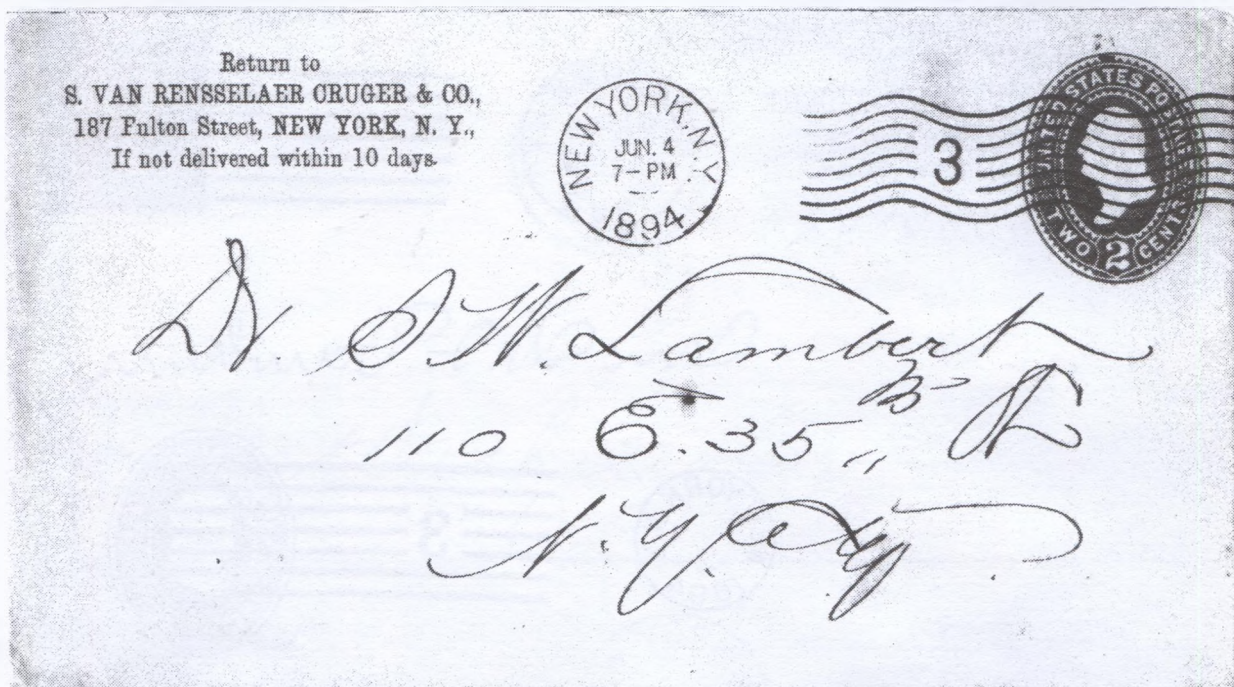 Return to
S. VAN RENSSELAER CRUGER & CO.,
187 Fulton Street, NEW YORK, N. Y.,
If not delivered within 10 days.
NEW YORK, N.Y.
JUN. 4
7-PM
1894
3
UNITED STATES POSTAGE
TWO 2 CENTS
Dr S. W. Lambert
110 E. 35th St
N. Y. City